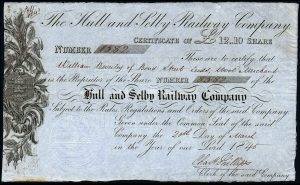 The Hull and Selby Railway Company
CERTIFICATE OF £12..10 SHARE
NUMBER
These are to certify that
William of Bond Street Leeds, Merchant
is the Proprietor of the Share NUMBER of the
Hull and Selby Railway Company
Subject to the Rules Regulations and Orders of the said Company
Given under the Common Seal of the said
Company the Day of March
in the Year of our Lord 1845
Clerk of the said Company